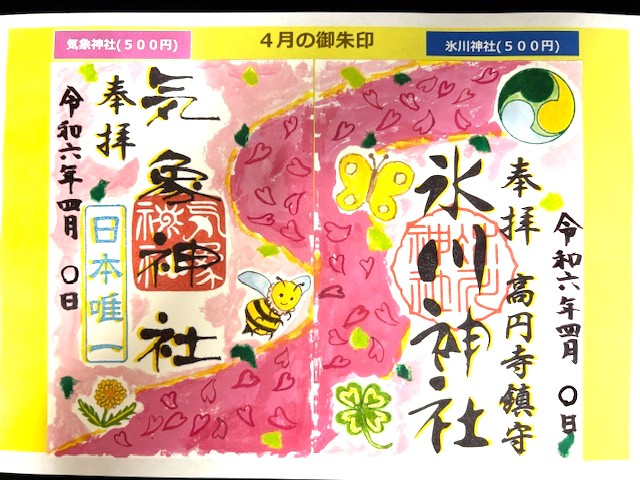 ４月の御朱印
氷川神社(５００円)
令和六年四月 〇日
奉拝 高円寺鎮守
氷川神社
気象神社(５００円)
気象神社
奉拝
日本唯一
令和六年四月 〇日